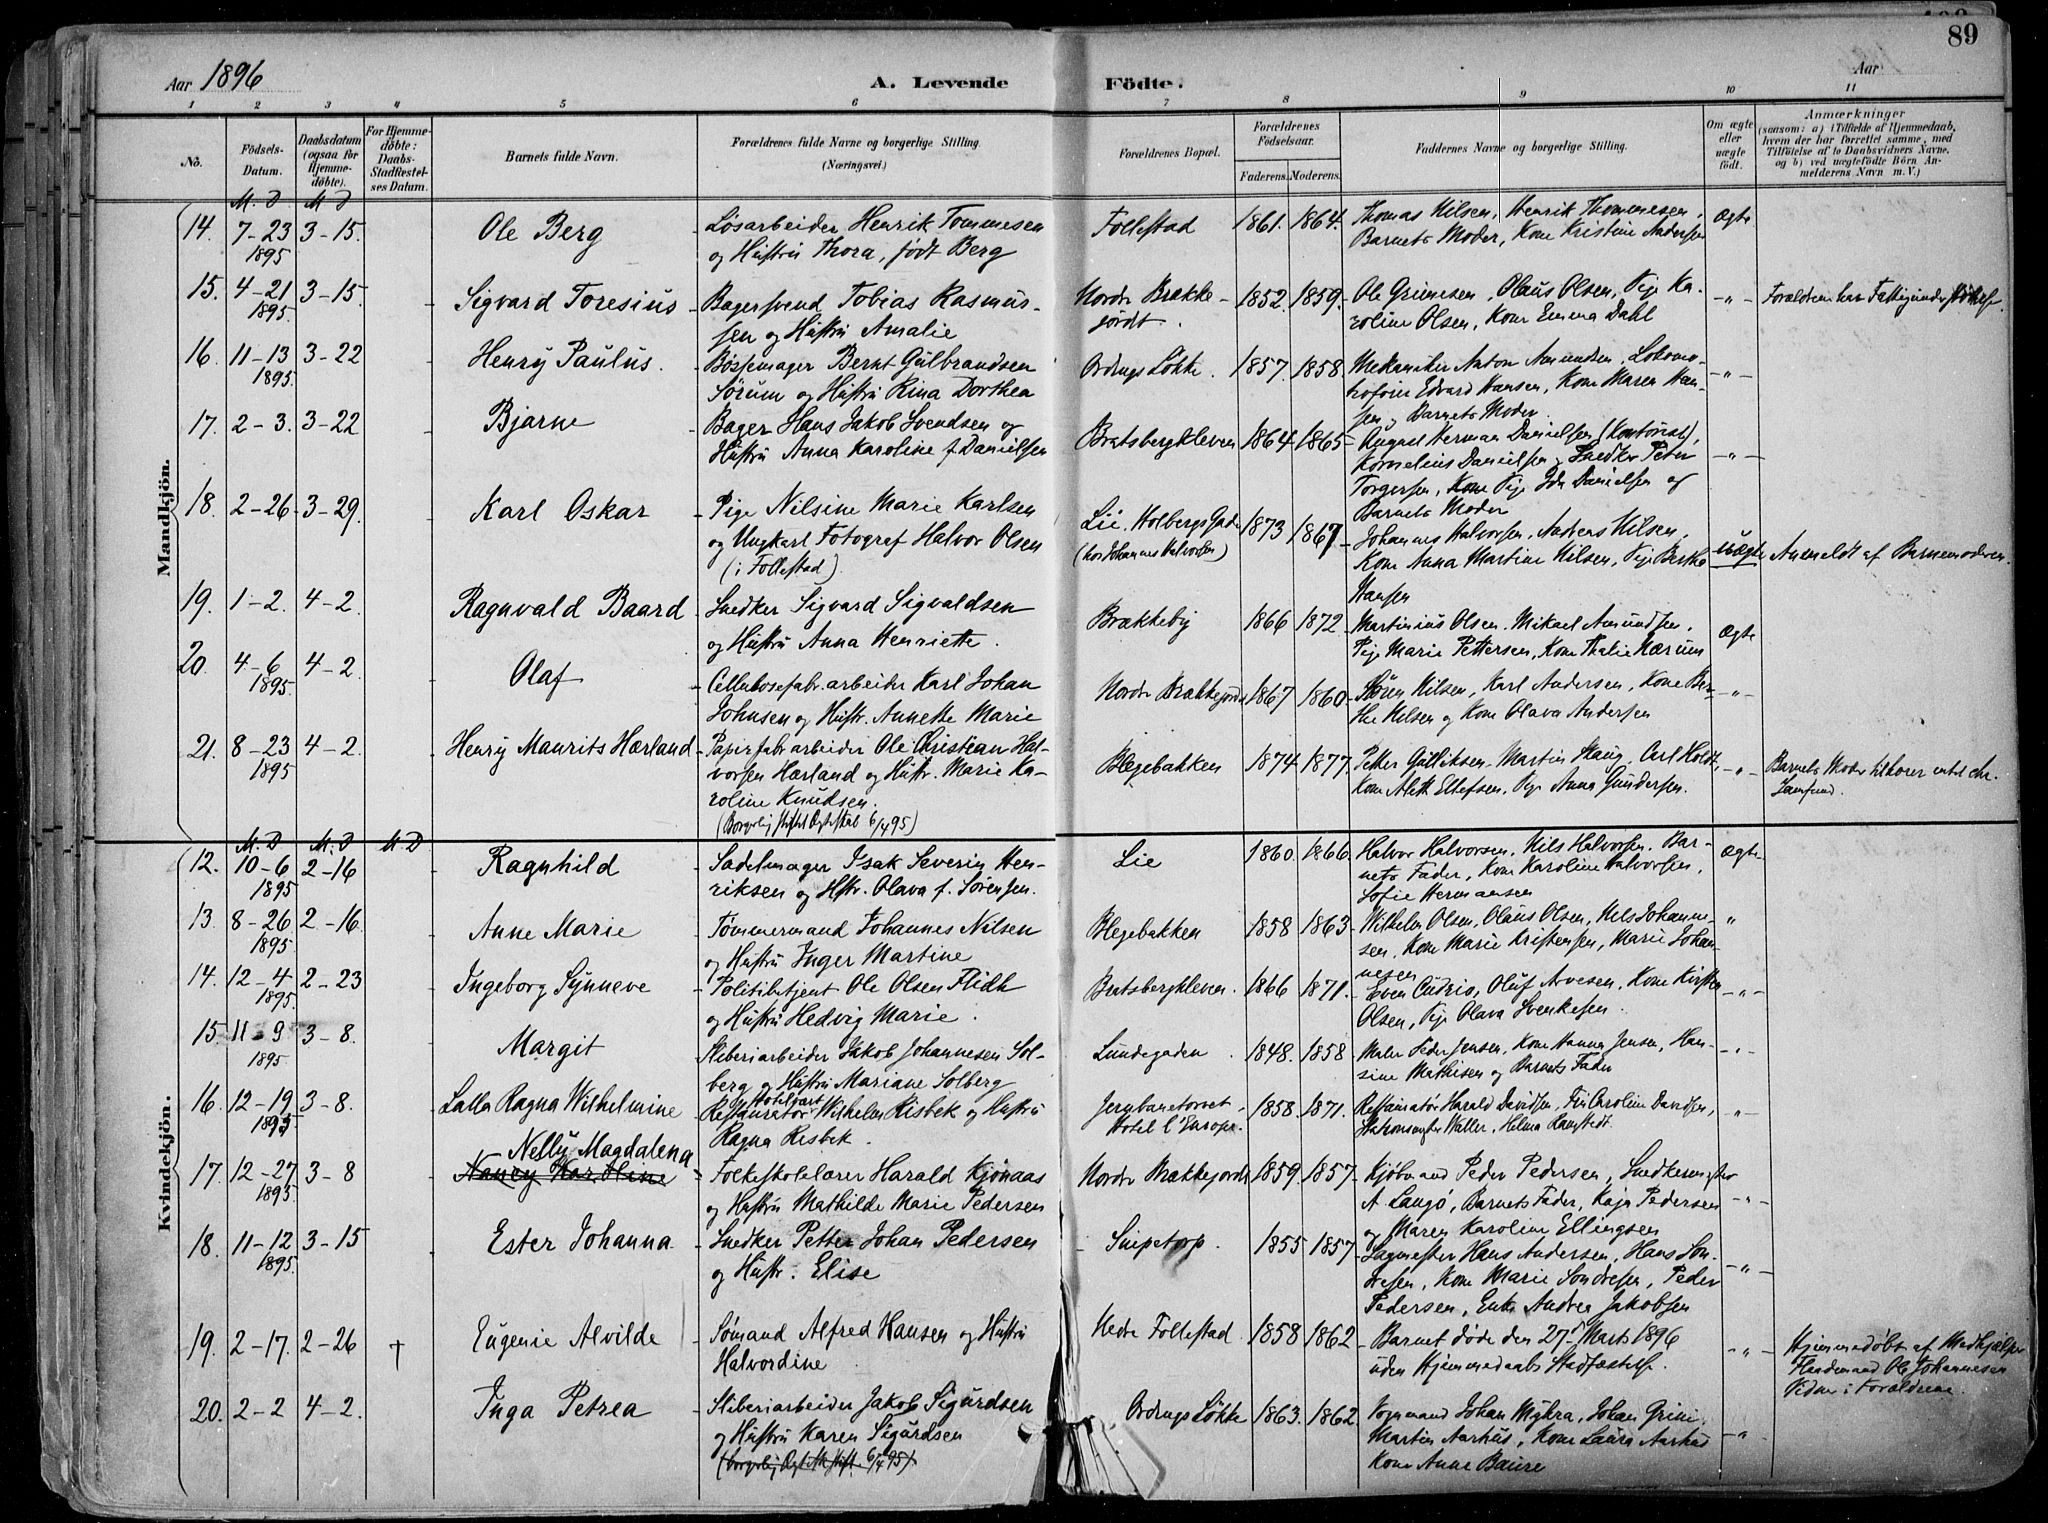 89
Aar 1896
A. Levende Födte.
Aar
1 2 3 4 5 6 7 8 9 10 11
No.
Födsels-Datum.
Daabsdatum (ogsaa for Hjemme-döbte).
For Hjemme-döbte: Daabs-Stadfæstel-ses Datum.
Barnets fulde Navn.
Forældrenes fulde Navne og borgerlige Stilling.
(Næringsvei.)
Forældrenes Bopæl.
Forældrenes Födselsaar.
Faderens. Moderens.
Faddernes Navne og borgerlige Stilling.
Om ægte eller uægte födt.
Anmærkninger
(saasom: a) i Tilfælde af Hjemmedaab, hvem der har forrettet samme, med Tilföielse af to Daabsvidners Navne, og b) ved uægtefödte Börn An-melderens Navn m. V.)
Mandkjön.
M. D M D
14. 7-23 3-15. Ole Berg Løsarbeider Henrik Tommesen Follestad 1861. 1864. Thomas Nilsen, Henrik Thommesen, Ægte
1895 og Hustru Thora, født Berg Barnets Moder, Kone Kristine Andersen
15. 4-21 3-15. Sigvard Toresius Bagersvend Tobias Rasmus- Nordr Brække- 1852. 1859. Ole Grimesen, Olaus Olsen, Pige Ka- -"- Forældrene har Fattigunderstøttelse.
1895. sen og Hustru Amalie jordt. roline Olsen, Kone Emma Dahl
16. 11-13 3-22 Henry Paulus. Bøssemager Bernt Gulbrandsen Ordrups Løkke. 1857. 1858 Mekaniker Anton Amundsen, Lokomo- -"-
1895. Sørum og Hustru Rina Dorthea Edvard Hansen, Kone Maren Han-
sen, Barnets Moder.
17. 2-3. 3-22 Bjarne Bager Hans Jakob Svendsen og Bratsbergkleven 1864 1865 August Herman Danielsen (Kontorist),
Hustru Anna Karoline f. Danielsen Kornelius Danielsen, Snedker Peter -"-
Torgersen, Pige Ida Danielsen og
Barnets Moder
18. 2-26 3-29. Karl Oskar Pige Nilsine Marie Karlsen Lie. Holbergs Gade 1873 1867 Johannes Halvorsen, Andreas Nilsen, uægte Anmeldt af Barnemoderen.
og Ungkarl Fotograf Halvor Olsen (hos Johannes Halvorsen) Kone Anna Martine Nilsen, Pige Berthe
(i Follestad) Hansen
19. 1-2. 4-2. Ragnvald Baard Snedker Sigvard Sigvaldsen Brækkeby 1866 1872 Martinius Olsen, Mikael Amundsen, Ægte
og Hustru Anna Henriette. Pige Marie Pettersen, Kone Thalie Nærum
20. 4-6 4-2 Olaf Cellulosefabr.arbeider Karl Johan Nordr Brækkejordt 1867 1860 Søren Nilsen, Karl Andersen, Kone Ber- -"-
1895. Johnsen og Hustr. Annette Marie the Nilsen og Kone Olava Andersen
21. 8-23 4-2. Henry Maurits Hærland Papirfabr.arbeider Ole Christian Hal- Blegebakken 1874 1877. Petter Gulliksen, Martin Haug, Carl Holdt, -"- Barnets Moder tilhører
1895 vorsen Hærland og Hustr. Marie Ka- Kone Aleth Ellefsen, Pige Anna Gundersen. Samfund.
roline Knudsen.
(Borgerlig stiftet Ægteskab 6/4 95)
Kvindekjön.
M. D M. D M D
12. 10-6 2-16 Ragnhild Sadelmager Isak Severin Hen- Lie 1860. 1866. Halvor Halvorsen, Nils Halvorsen, Bar- Ægte
1895 riksen og Hstr. Olava f. Sørensen. nets Fader, Kone Karoline Halvorsen,
Sofie Hermansen
13. 8-26 2-16. Anne Marie Tømmermand Johannes Nilsen Blegebakken 1858 1863 Wilhelm Olsen, Olaus Olsen, Nils Johanne- "
1895 og Hustru Inger Martine sen, Kone Marie Kristensen, Marie Johan-
nesen
14. 12-4 2-23 Ingeborg Synneve Politibetjent Ole Olsen Flidh Bratsbergkleven. 1866 1871. Even Oudrio, Oluf Arvesen, Kone Kirsten -"-
1895. og Hustru Hedvig Marie. Olsen, Pige Olava Svenkesen.
15 11-9 3-8. Margit Sliberiarbeider Jakob Johannesen Sol- Lundegaden. 1848. 1858 Maler Peder Jensen, Kone Hanna Jensen, Han- -"-
1895. berg og Hustru Mariane Solberg sine Mathisen og Barnets Fader
16. 12-19 3-8. Lalla Ragna Wilhelmine Restauratør Wilhelm Risbek og Hustru Jernbanetorvet 1858. 1871. Restauratør Harald Davidsen, Caroline Davidsen, -"-
1895 Ragna Risbek. Hotel l'Europe. Waller, Helma Ramstedt.
Nelly Magdalena
17. 12-27 3-8 Folkeskolelærer Harald Kjønaas Nordr Brækkejordt 1859. 1857. Kjøbmand Peder Pedersen, Snedkermester
1895 og Hustru Mathilde Marie Pedersen A. Langø, Barnets Fader, Kaja Pedersen -"-
og Maren Karoline Ellingsen
18. 11-12 3-15 Ester Johanna Snedker Petter Johan Pedersen Snipetorp. 1855 1857. Sagmester Hans Andersen, Hans Son-
1895. og Hustr. Elise dresen, Kone Marie Sondresen, Peder -"-
Pedersen, Enke Andrea Jakobsen
19. 2-17. 2-26 † Eugenie Alvilde Sømand Alfred Hansen og Hustru Nedre Follestad. 1858 1862 Barnet døde den 27. Marts 1896 -"- Hjemmedøbt af Medhjælper
Halvordine. uden Hjemmedaabs Stadfæstelse. Ole Johannesen
Vidner: Forældrene.
20. 2-2 4-2. Inga Petrea Sliberiarbeider Jakob Sigurdsen Ordrups Løkke 1863. 1862. Vognmand Johan Myhra, Johan Grini,
og Hustru Karen Sigurdsen Martin Aarhus, Kone Laura Aarhus -"-
6/4 95) Kone Anne Baure